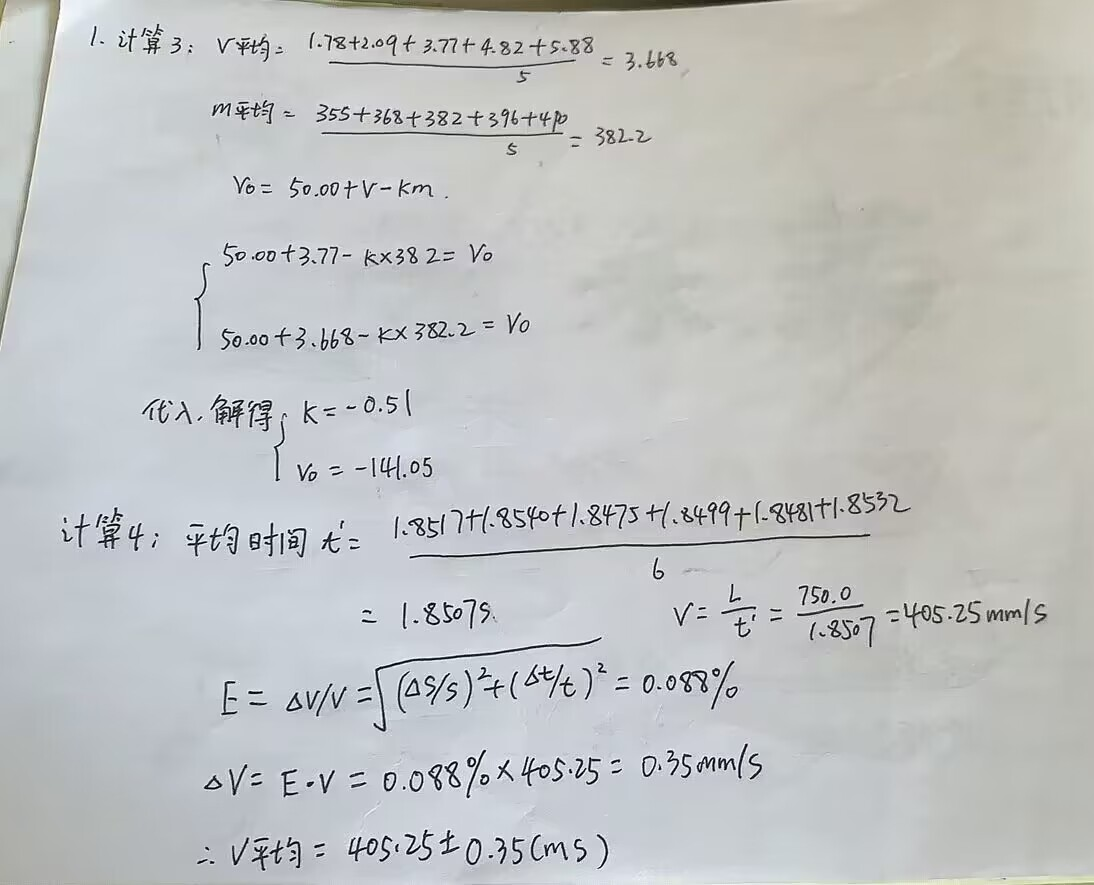 1. 计算3: V平均 = (1.78+2.09+3.77+4.82+5.88)/5 = 3.668
m平均 = (355+368+382+396+410)/5 = 382.2
V₀ = 50.00+V-km.
50.00+3.77-K×382 = V₀
50.00+3.668-K×382.2 = V₀
代入.解得 { K=-0.51
V₀ = -141.05
计算4: 平均时间 t' = (1.8517+1.8540+1.8475+1.8499+1.8481+1.8532)/6
= 1.8507s. V = L/t' = 750.0/1.8507 = 405.25mm/s
E = ΔV/V = √((ΔS/S)²+(Δt/t)²) = 0.088%
ΔV = E·V = 0.088%×405.25 = 0.35mm/s
∴ V平均 = 405.25±0.35(ms)